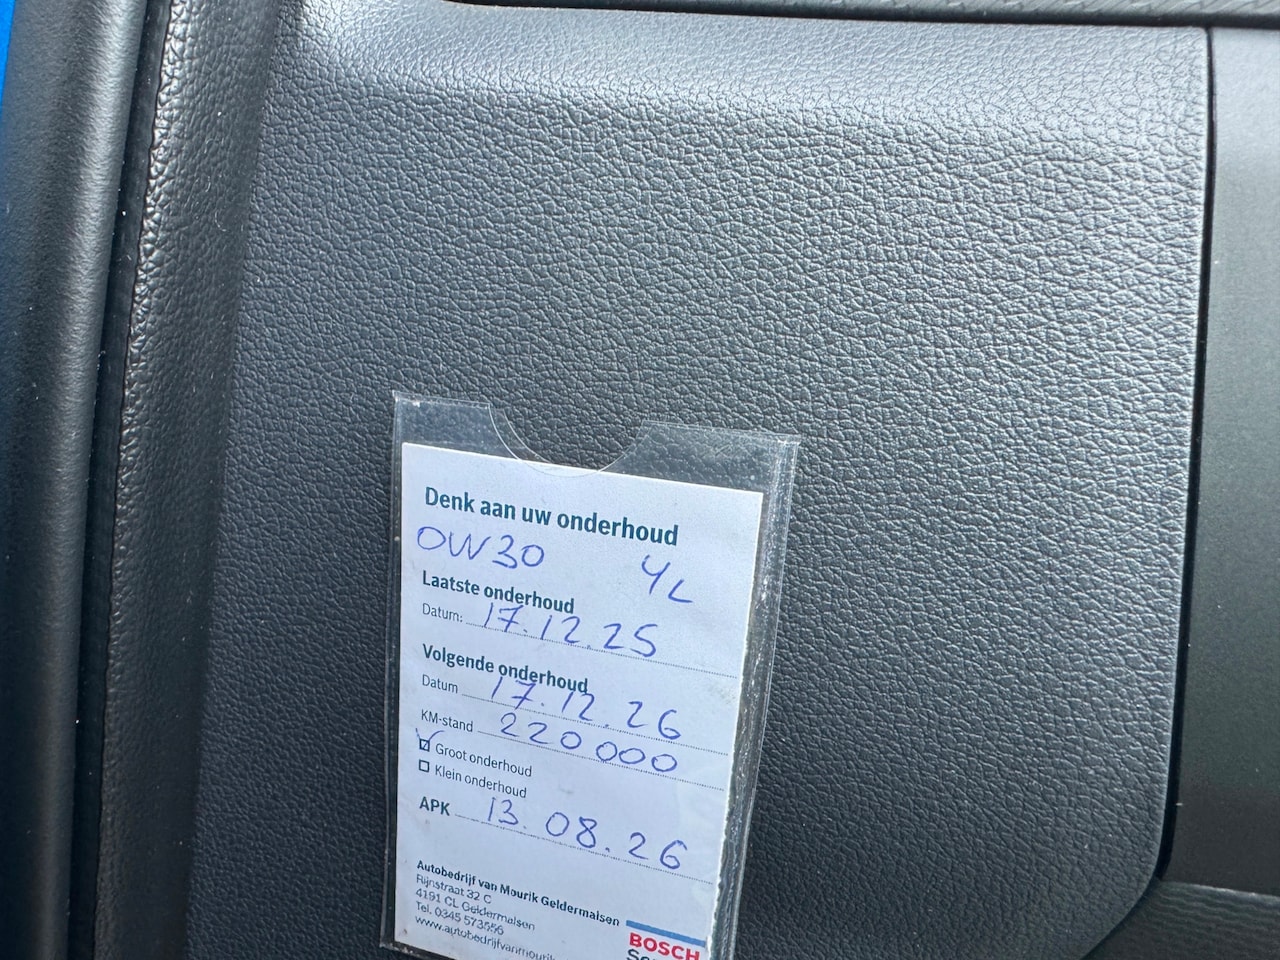 Denk aan uw onderhoud
OW30 4L
Laatste onderhoud
Datum: 17.12.25
Volgende onderhoud
Datum 17.12.26
KM-stand 220000
Groot onderhoud
Klein onderhoud
APK 13.08.26
Autobedrijf van Mourik Geldermalsen
Rijnstraat 32 C
4191 CL Geldermalsen
Tel. 0345 573556
www.autobedrijfvanmourik
BOSCH